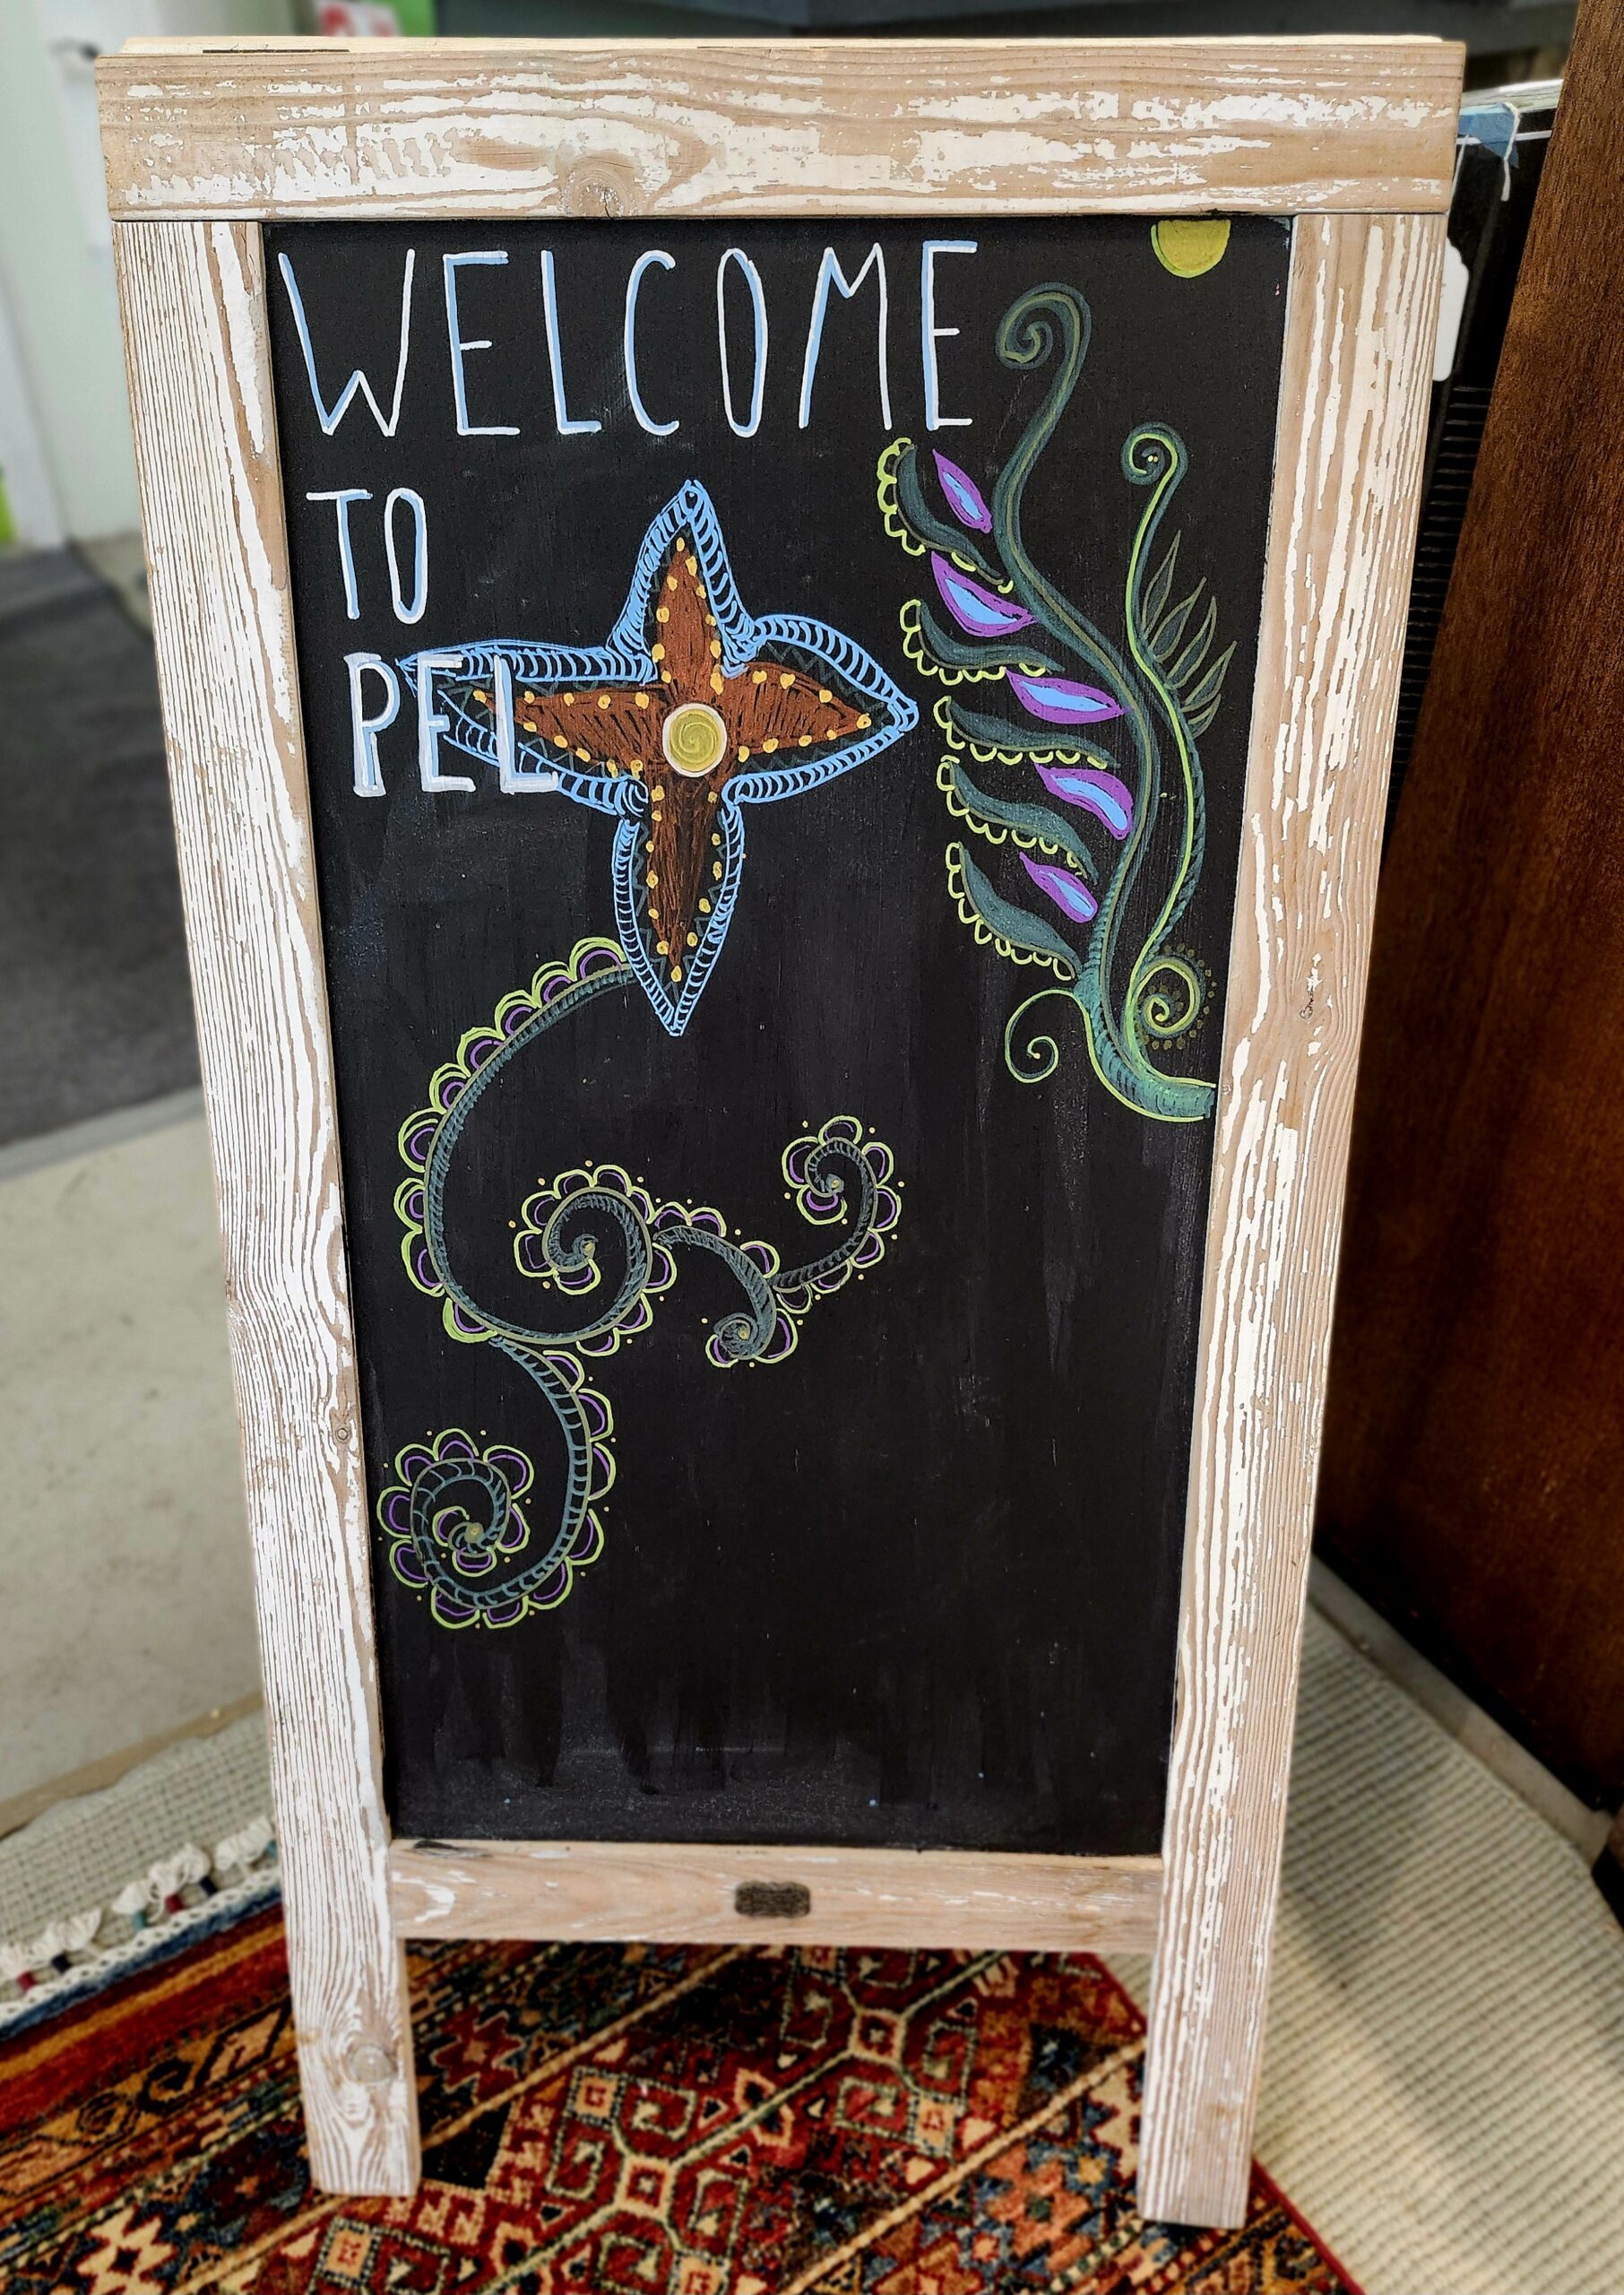 WELCOME
TO
PEL